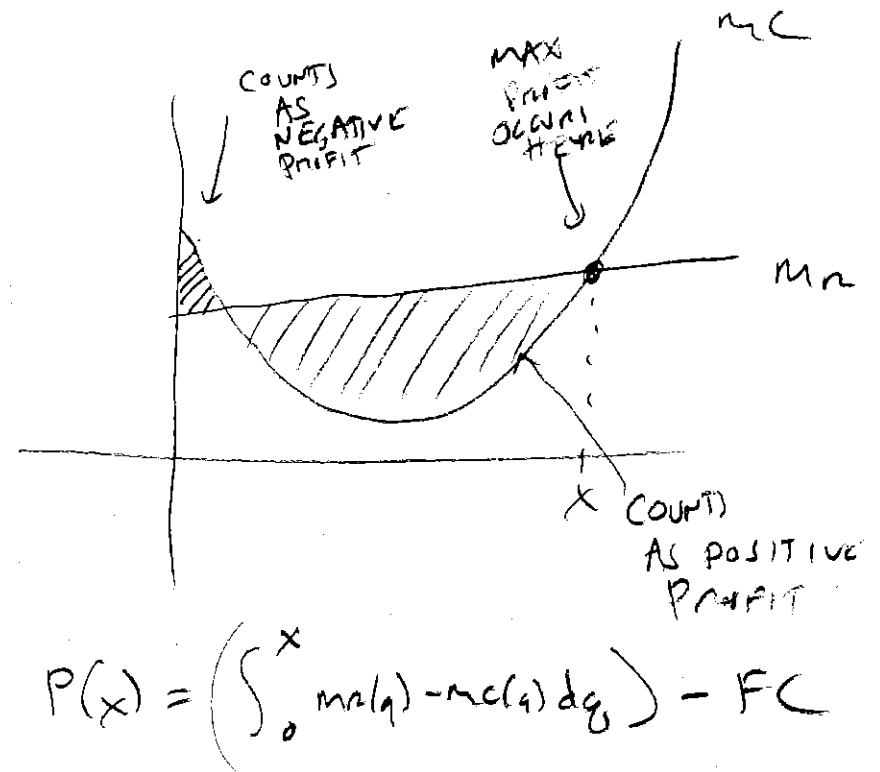 MC
COUNTS
AS
NEGATIVE
PROFIT
MAX
PROFIT
OCCURS
HERE
MR
X
COUNTS
AS POSITIVE
PROFIT
P(x) = (∫₀ˣ mr(q) - mc(q) dq) - FC